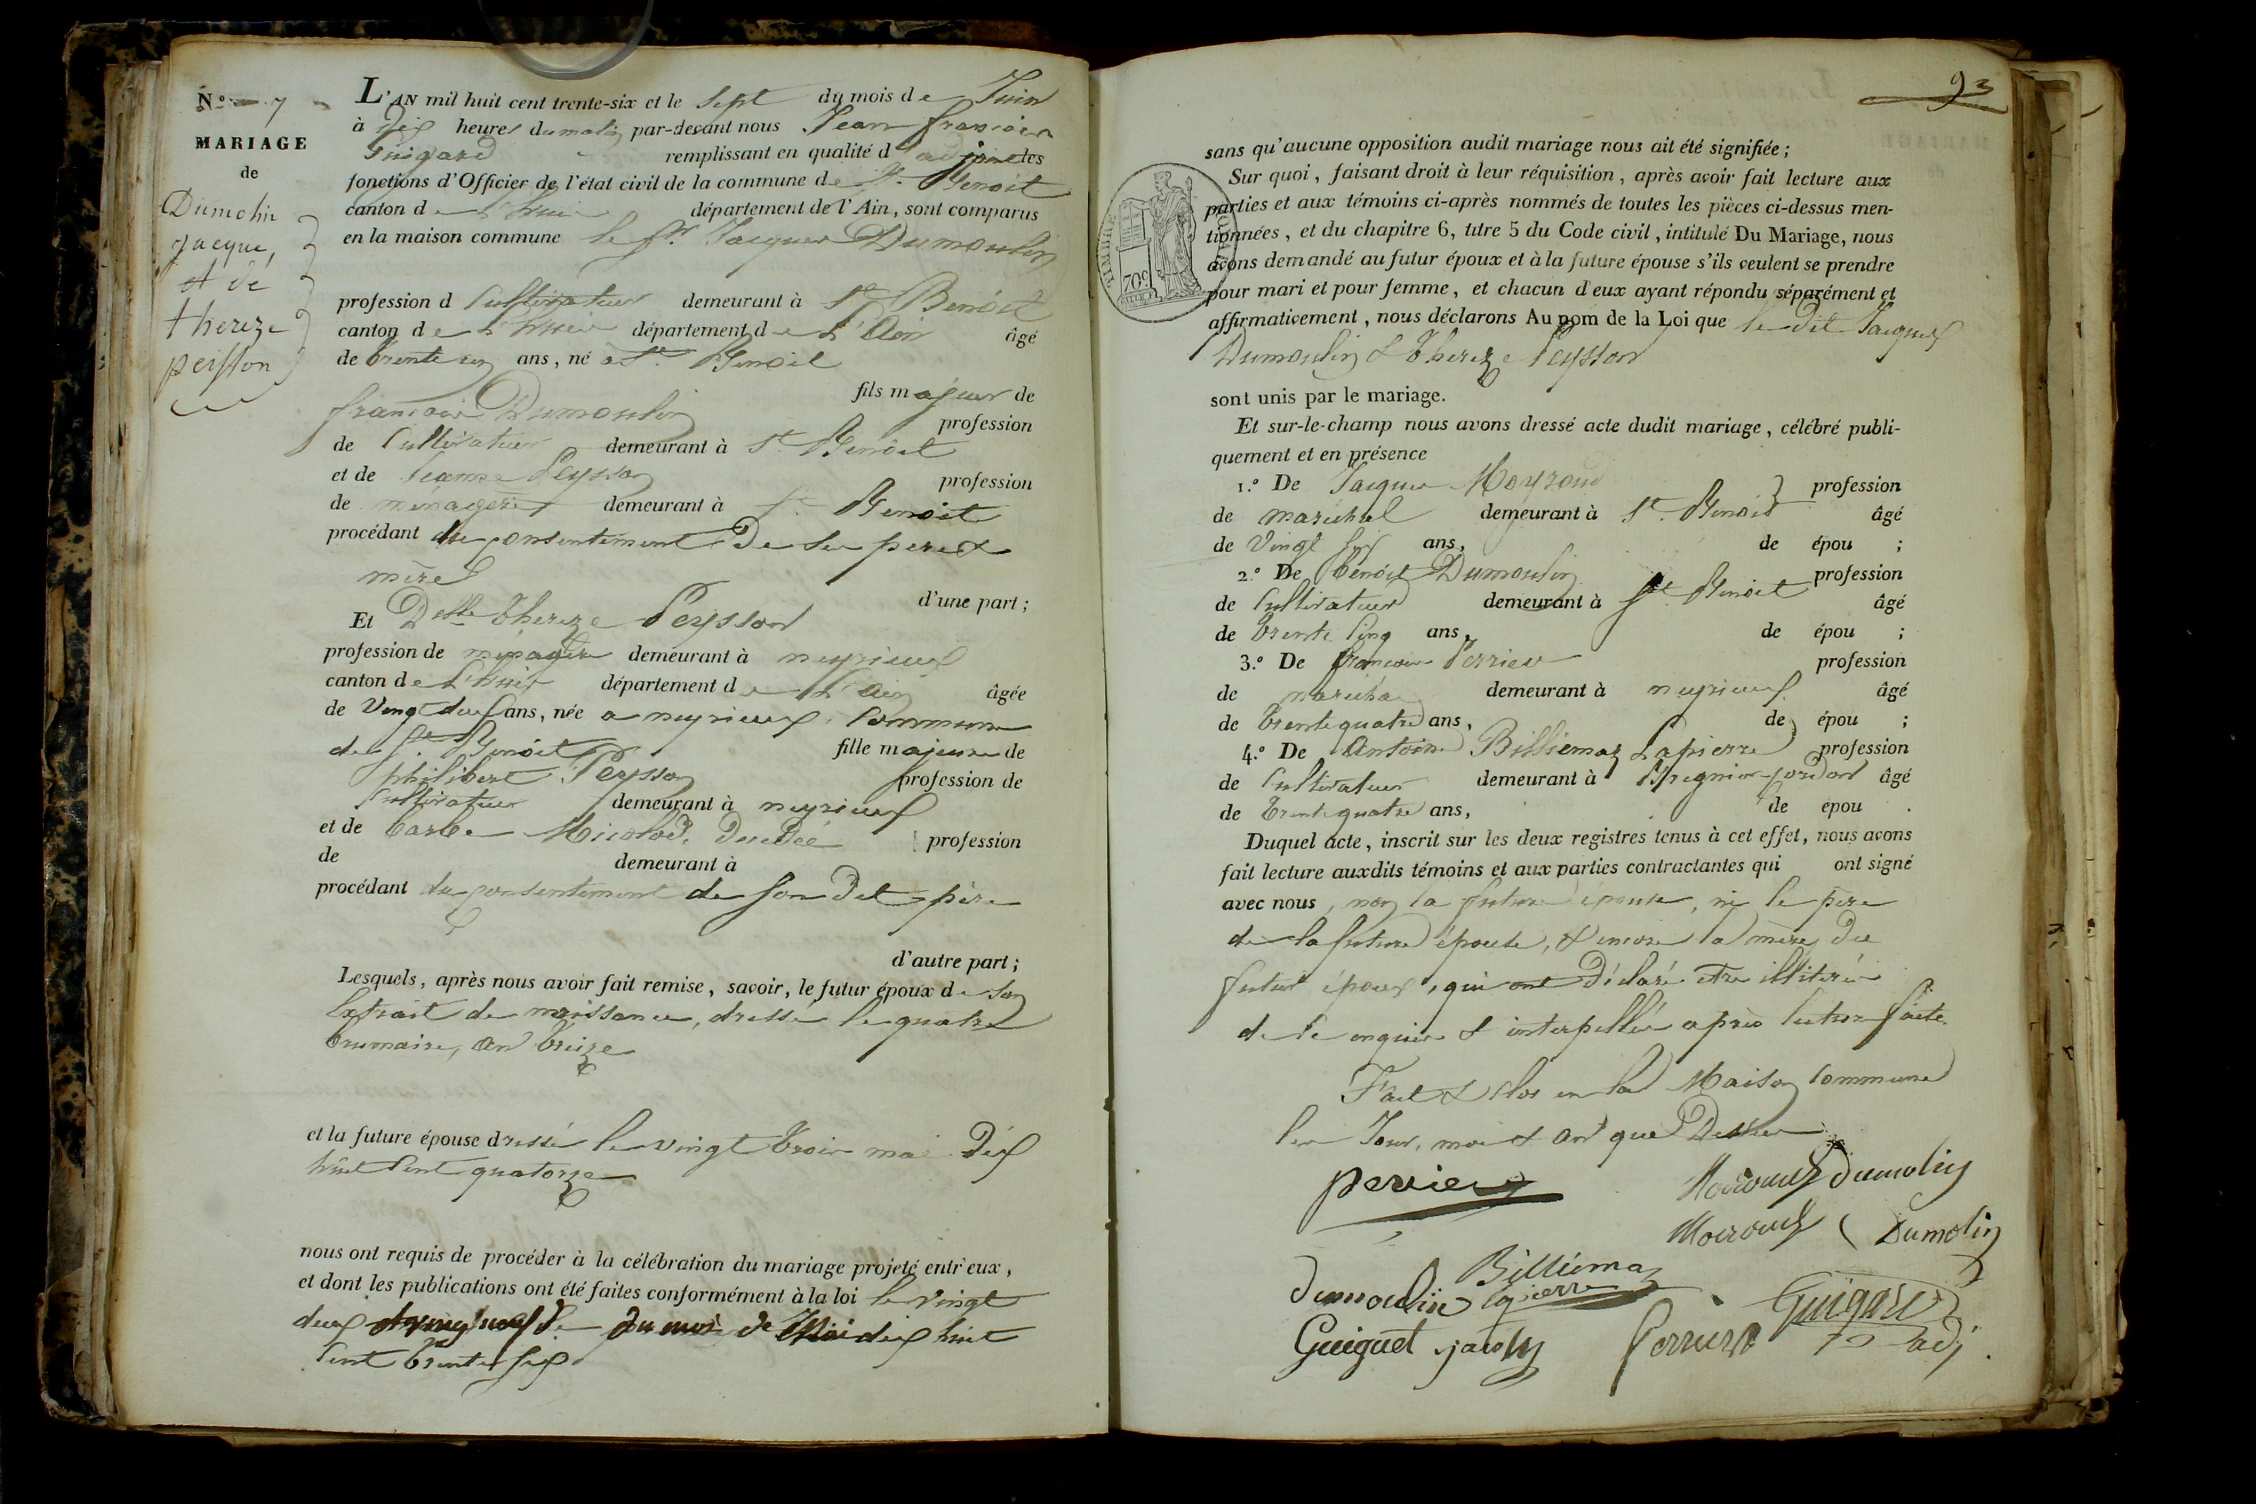 N.° 7
MARIAGE
de
Dumolin
jacque,
& dé
thereze
peisson
L'AN mil huit cent trente-six et le Sept du mois de Juin
à dix heures du matin par-devant nous Jean françois
Guigard remplissant en qualité d'adjoint les
fonctions d'Officier de l'état civil de la commune de St. Benoit
canton de L'huis département de l'Ain, sont comparus
en la maison commune le Sr. Jacques Dumoulin
profession d Cultivateur demeurant à St. Benoit
canton de L'huis département de L'Ain âgé
de trente un ans, né à St. Benoit
fils majeur de
françois Dumoulin profession
de Cultivateur demeurant à St. Benoit
et de Jeanne Peysson profession
de ménagère demeurant à St. Benoit
procédant du consentement de ses pere &
mère
d'une part;
Et Delle Thereze Peysson
profession de ménagère demeurant à neyrieux
canton de L'huis département de L'Ain âgée
de Vingt deux ans, née a neyrieux, Commune
de St. Benoit fille majeure de
philibert Peysson profession de
Cultivateur demeurant à neyrieux
et de Barbe Micolod, Decedée profession
de demeurant à
procédant du consentement de son dit père
d'autre part;
Lesquels, après nous avoir fait remise, savoir, le futur époux de son
Extrait de naissance, dressé le quatre
brumaire, an treize
et la future épouse dressé le vingt trois mai dix
huit Cent quatorze
nous ont requis de procéder à la célébration du mariage projeté entr'eux,
et dont les publications ont été faites conformément à la loi le vingt
deux et vingt neuf du mois de Mai dix huit
Cent trente six
93
sans qu'aucune opposition audit mariage nous ait été signifiée;
Sur quoi, faisant droit à leur réquisition, après avoir fait lecture aux
parties et aux témoins ci-après nommés de toutes les pièces ci-dessus men-
tionnées, et du chapitre 6, titre 5 du Code civil, intitulé Du Mariage, nous
avons demandé au futur époux et à la future épouse s'ils veulent se prendre
pour mari et pour femme, et chacun d'eux ayant répondu séparément et
affirmativement, nous déclarons Au nom de la Loi que le dit Jacques
Dumoulin & Thereze Peysson
sont unis par le mariage.
Et sur-le-champ nous avons dressé acte dudit mariage, célébré publi-
quement et en présence
1.° De Jacques Moyroud profession
de maréchal demeurant à St. Benoit âgé
de Vingt six ans, de épou ;
2.° De Benoit Dumoulin profession
de Cultivateur demeurant à St. Benoit âgé
de trente Cinq ans, de épou ;
3.° De françois Perrier profession
de maréchal demeurant à neyrieux âgé
de trente quatre ans, de épou ;
4.° De Antoine Billiemaz Lapierre profession
de Cultivateur demeurant à Bregnier-cordon âgé
de trente quatre ans, de épou .
Duquel acte, inscrit sur les deux registres tenus à cet effet, nous avons
fait lecture auxdits témoins et aux parties contractantes qui ont signé
avec nous, non la future épouse, ni le père
de la future épouse, & encore la mère du
futur époux, qui ont déclaré être illitérés
de ce enquis & interpellés après lecture faite.
Fait & clos en la Maison Commune
les Jour, mois & an que Dessus
TIMBRE ROYAL
perrier
Moiroud dumolin
Moiroud Dumolin
Billiemaz
dumoulin lapierre
Guigard
Guiguet jacoby adj.